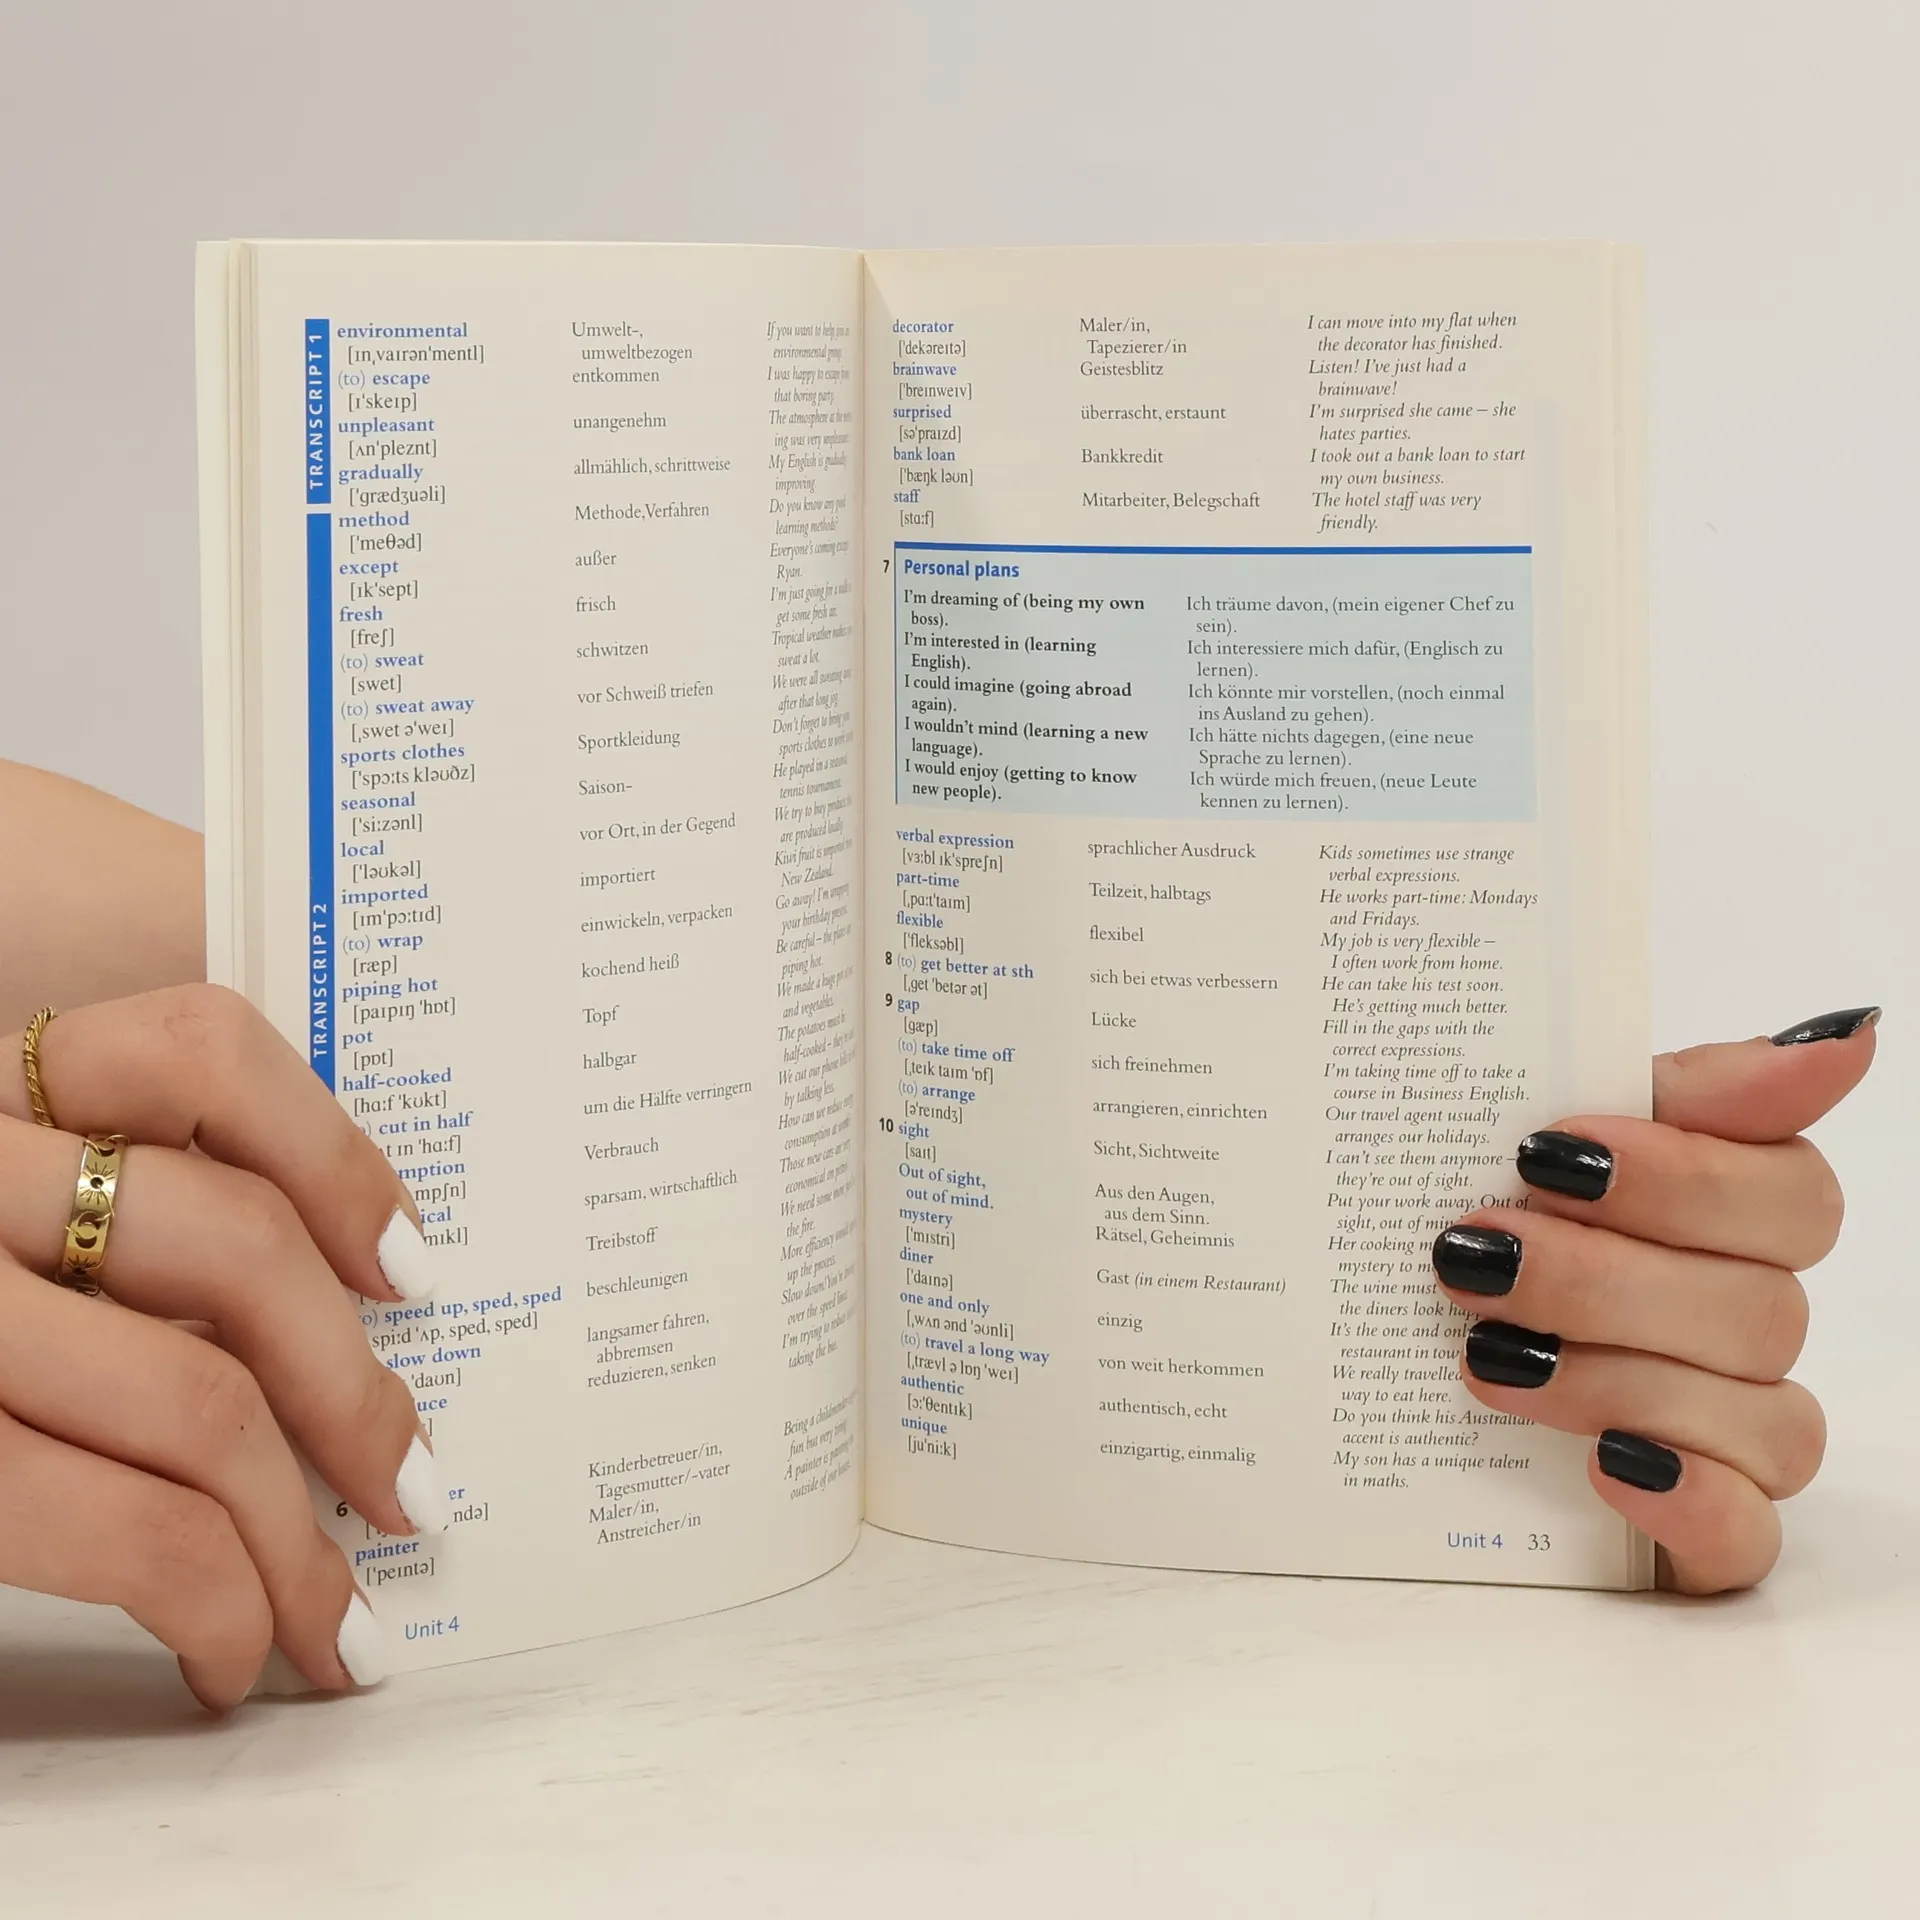 TRANSCRIPT 1
environmental
[ɪnˌvaɪrən'mentl]
Umwelt-,
umweltbezogen
If you want to help
environmental
(to) escape
[ɪ'skeɪp]
entkommen
I was happy to escape
that boring party.
unpleasant
[ʌn'pleznt]
unangenehm
The atmosphere at the
ing was very unpleasant.
gradually
['grædʒuəli]
allmählich, schrittweise
My English is gradually
improving.
TRANSCRIPT 2
method
['meθəd]
Methode,Verfahren
Do you know any good
learning methods?
except
[ɪk'sept]
außer
Everyone's coming
Ryan.
fresh
[freʃ]
frisch
I'm just going for a
get some fresh air.
(to) sweat
[swet]
schwitzen
Tropical weather makes
sweat a lot.
(to) sweat away
[ˌswet ə'weɪ]
vor Schweiß triefen
We were all sweating
after that long jog.
sports clothes
['spɔːts kləʊðz]
Sportkleidung
Don't forget to bring your
sports clothes to
seasonal
['siːzənl]
Saison-
He played in a seasonal
tennis tournament.
local
['ləʊkəl]
vor Ort, in der Gegend
We try to buy products
are produced locally.
imported
[ɪm'pɔːtɪd]
importiert
Kiwi fruit is imported
New Zealand.
(to) wrap
[ræp]
einwickeln, verpacken
Go away! I'm wrapping
your birthday present.
piping hot
[paɪpɪŋ 'hɒt]
kochend heiß
Be careful – the plates
piping hot.
pot
[pɒt]
Topf
We made a huge pot of
and vegetables.
half-cooked
[hɑːf 'kʊkt]
halbgar
The potatoes must be
half-cooked –
) cut in half
t ɪn 'hɑːf]
um die Hälfte verringern
We cut our phone bills in
by talking less.
mption
mpʃn]
Verbrauch
How can we reduce
consumption at
ical
mɪkl]
sparsam, wirtschaftlich
Those new cars are very
economical on petrol.
Treibstoff
We need some more
the fire.
o) speed up, sped, sped
spiːd 'ʌp, sped, sped]
beschleunigen
More efficiency would
up the process.
slow down
'daʊn]
langsamer fahren,
abbremsen
Slow down! You're
over the speed limit.
uce
reduzieren, senken
I'm trying to reduce
taking the bus.
6
er
ndə]
Kinderbetreuer/in,
Tagesmutter/-vater
Being a childminder
fun but very tiring.
painter
['peɪntə]
Maler/in,
Anstreicher/in
A painter is painting the
outside of our house.
Unit 4
decorator
['dekəreɪtə]
Maler/in,
Tapezierer/in
I can move into my flat when
the decorator has finished.
brainwave
['breɪnweɪv]
Geistesblitz
Listen! I've just had a
brainwave!
surprised
[sə'praɪzd]
überrascht, erstaunt
I'm surprised she came – she
hates parties.
bank loan
['bæŋk ləʊn]
Bankkredit
I took out a bank loan to start
my own business.
staff
[stɑːf]
Mitarbeiter, Belegschaft
The hotel staff was very
friendly.
7 Personal plans
I'm dreaming of (being my own
boss).
Ich träume davon, (mein eigener Chef zu
sein).
I'm interested in (learning
English).
Ich interessiere mich dafür, (Englisch zu
lernen).
I could imagine (going abroad
again).
Ich könnte mir vorstellen, (noch einmal
ins Ausland zu gehen).
I wouldn't mind (learning a new
language).
Ich hätte nichts dagegen, (eine neue
Sprache zu lernen).
I would enjoy (getting to know
new people).
Ich würde mich freuen, (neue Leute
kennen zu lernen).
verbal expression
[vɜːbl ɪk'spreʃn]
sprachlicher Ausdruck
Kids sometimes use strange
verbal expressions.
part-time
[ˌpɑːt'taɪm]
Teilzeit, halbtags
He works part-time: Mondays
and Fridays.
flexible
['fleksəbl]
flexibel
My job is very flexible –
I often work from home.
8 (to) get better at sth
[ˌget 'betər ət]
sich bei etwas verbessern
He can take his test soon.
He's getting much better.
9 gap
[gæp]
Lücke
Fill in the gaps with the
correct expressions.
(to) take time off
[ˌteɪk taɪm 'ɒf]
sich freinehmen
I'm taking time off to take a
course in Business English.
(to) arrange
[ə'reɪndʒ]
arrangieren, einrichten
Our travel agent usually
arranges our holidays.
10 sight
[saɪt]
Sicht, Sichtweite
I can't see them anymore –
they're out of sight.
Out of sight,
out of mind.
Aus den Augen,
aus dem Sinn.
Put your work away. Out of
sight, out of min
mystery
['mɪstri]
Rätsel, Geheimnis
Her cooking m
mystery to m
diner
['daɪnə]
Gast (in einem Restaurant)
The wine must
the diners look happ
one and only
[ˌwʌn ənd 'əʊnli]
einzig
It's the one and only
restaurant in tow
(to) travel a long way
[ˌtrævl ə lɒŋ 'weɪ]
von weit herkommen
We really travelled
way to eat here.
authentic
[ɔː'θentɪk]
authentisch, echt
Do you think his Australian
accent is authentic?
unique
[ju'niːk]
einzigartig, einmalig
My son has a unique talent
in maths.
Unit 4 33